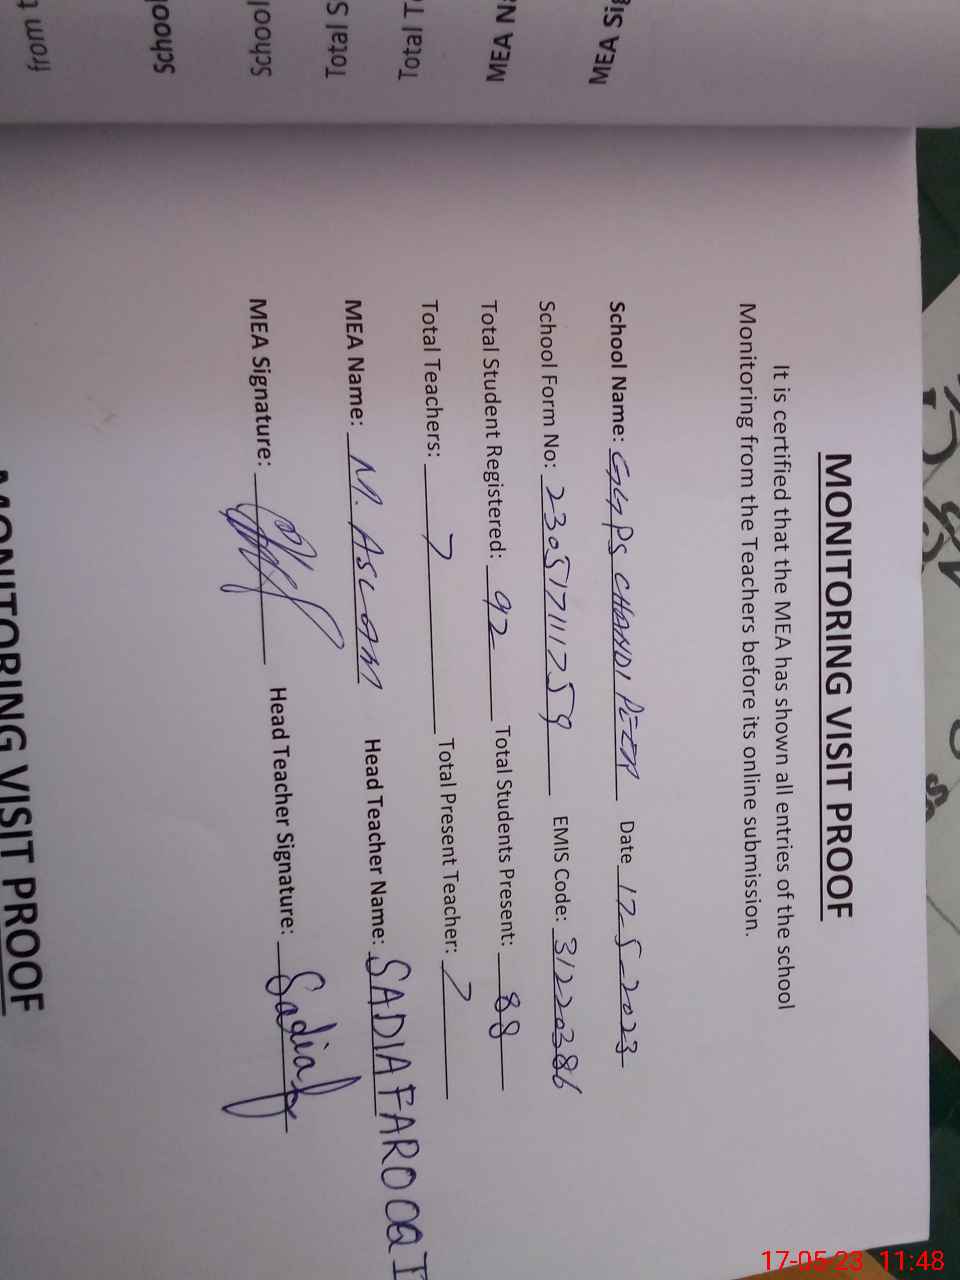 MONITORING VISIT PROOF
It is certified that the MEA has shown all entries of the school
Monitoring from the Teachers before its online submission.
School Name: GGPS CHANDI PEER Date 17-5-2023
School Form No: 230517111759 EMIS Code: 31220386
Total Student Registered: 92 Total Students Present: 88
Total Teachers: 7 Total Present Teacher: 7
MEA Name: M. ASLAM Head Teacher Name: SADIA FAROOQI
MEA Signature: Head Teacher Signature: Sadiaf
MONITORING VISIT PROOF
MEA Si
MEA N
Total T
Total S
School
School
from
17-05-23 11:48